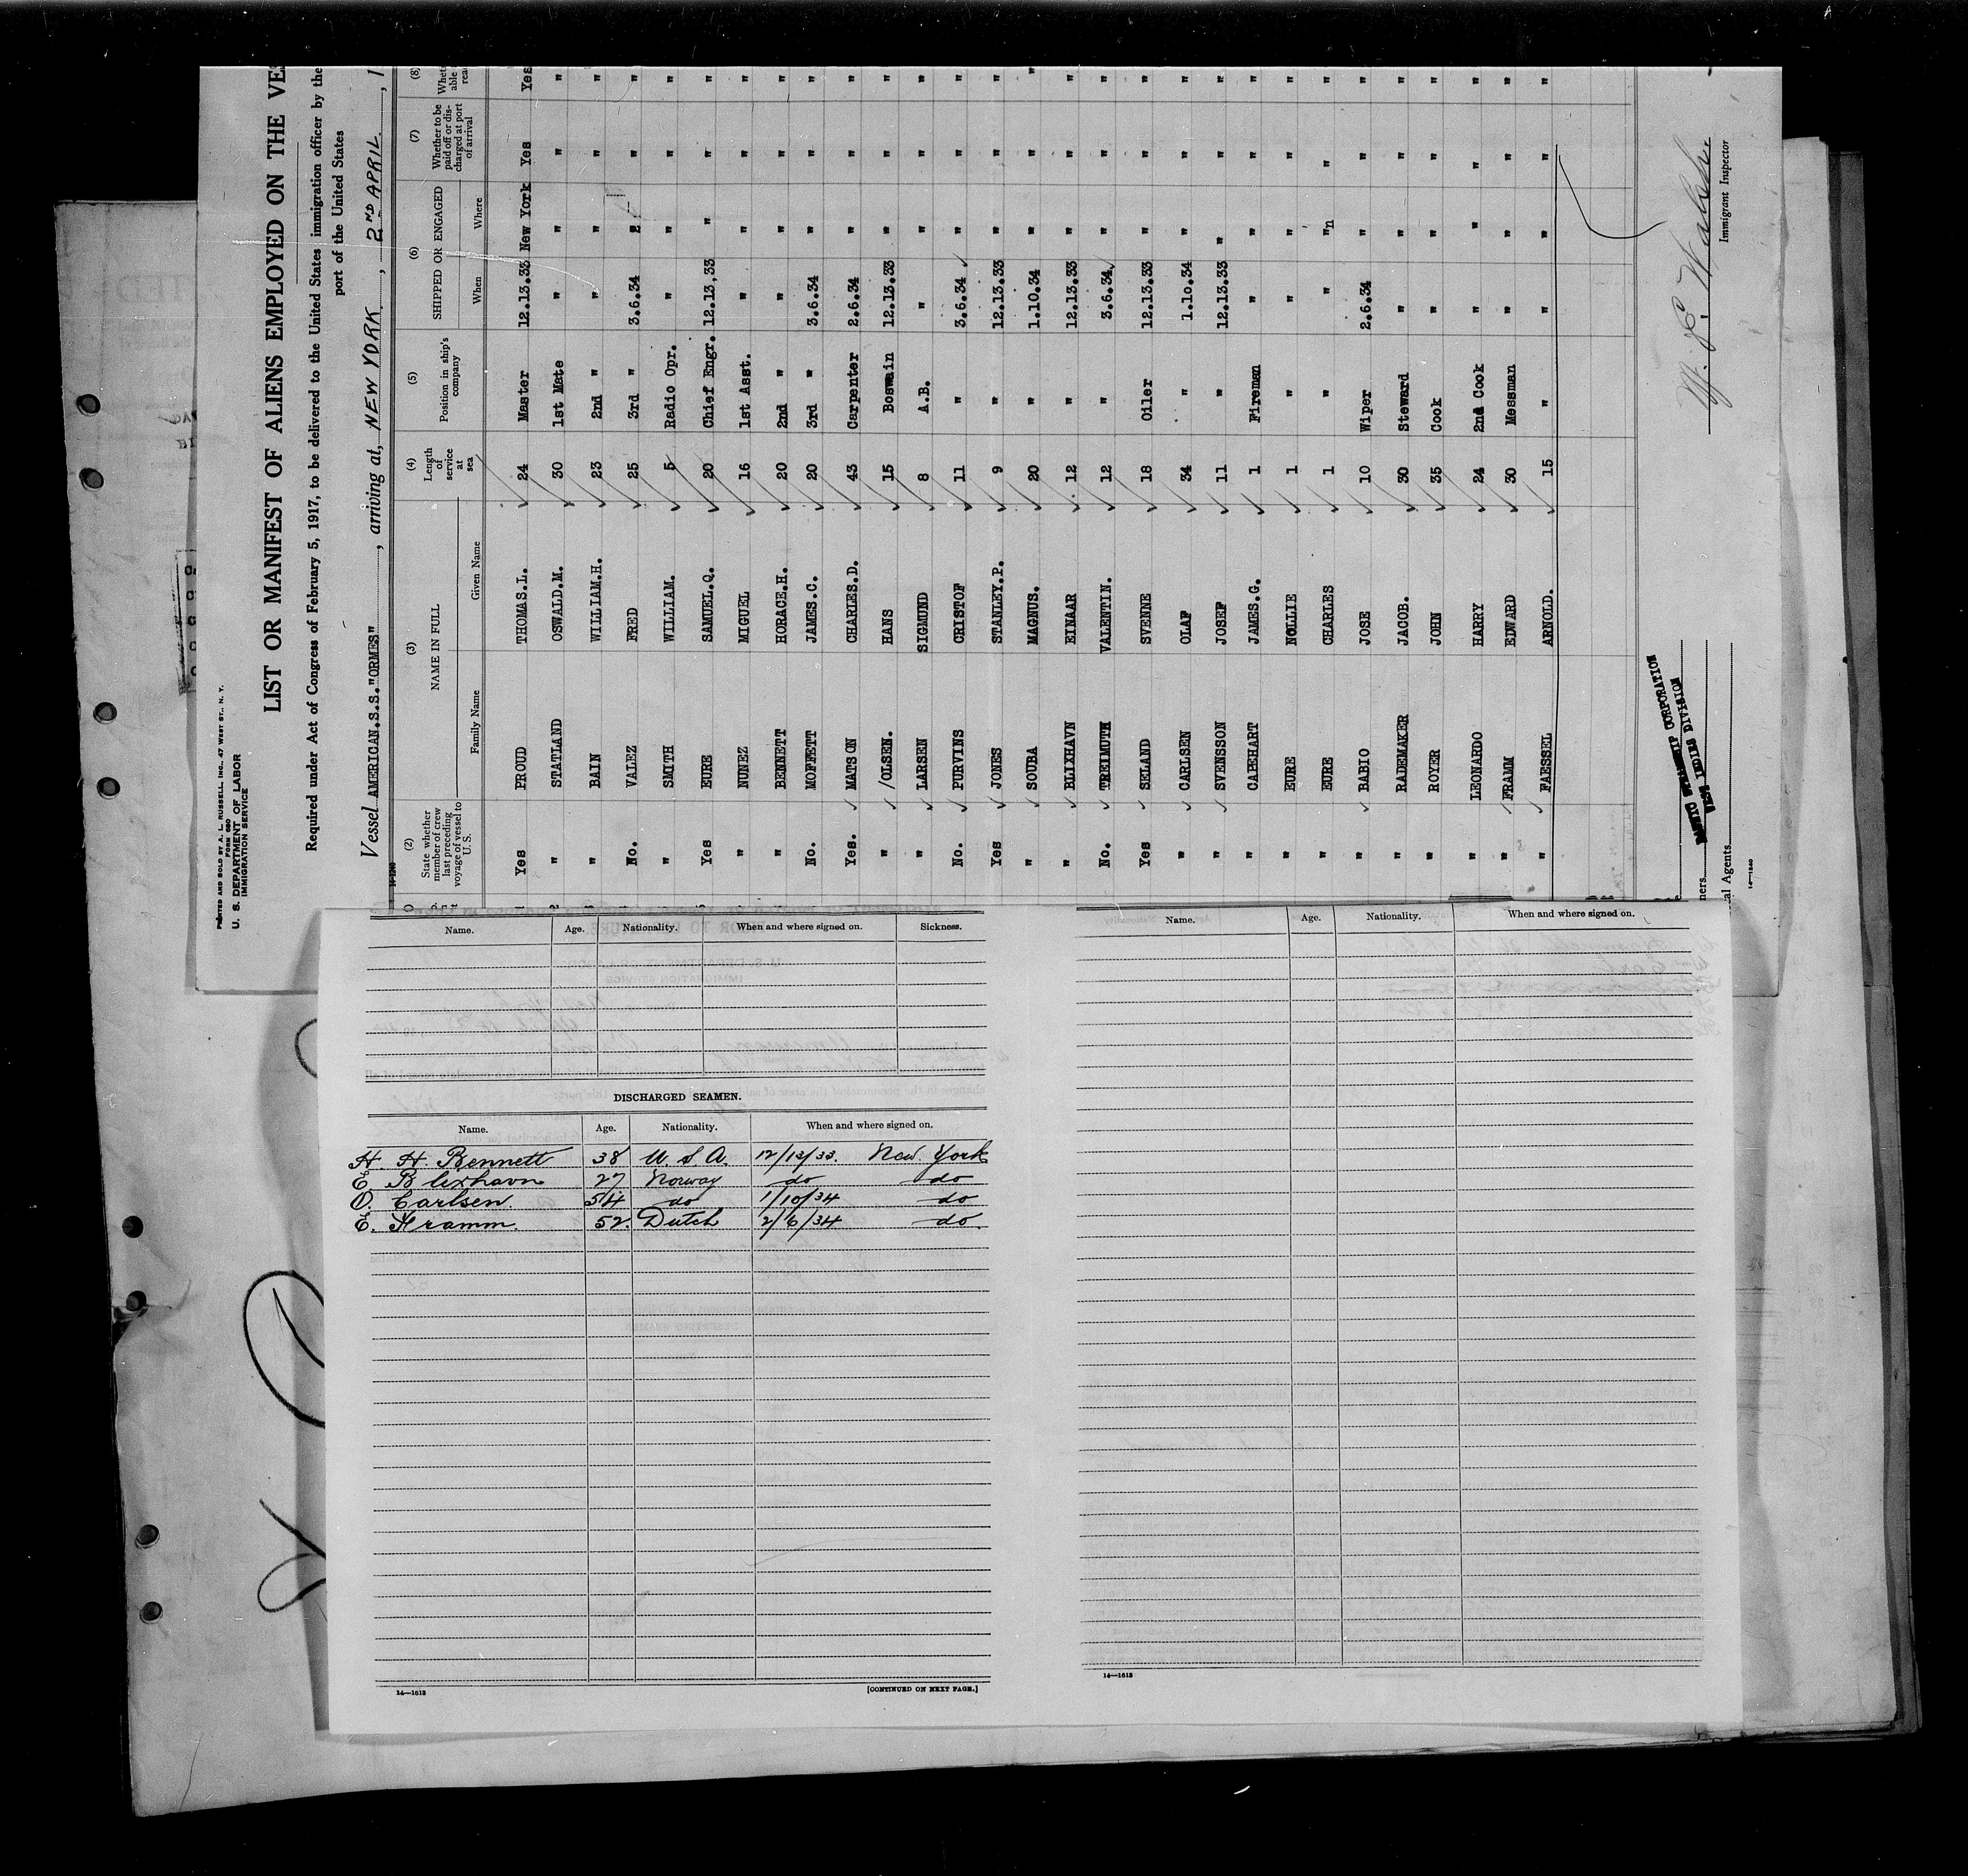 PRINTED AND SOLD BY A. L. RUSSELL, INC., 47 WEST ST., N. Y.
FORM 680
U. S. DEPARTMENT OF LABOR
IMMIGRATION SERVICE
LIST OR MANIFEST OF ALIENS EMPLOYED ON THE VES
Required under Act of Congress of February 5, 1917, to be delivered to the United States immigration officer by the
port of the United States
Vessel AMERICAN.S.S."ORMES", arriving at, NEW YORK, 2ND APRIL, 1
(2) (3) (4) (5) (6) (7) (8)
State whether member of crew last preceding voyage of vessel to U. S. NAME IN FULL Length of service at sea Position in ship's company SHIPPED OR ENGAGED Whether to be paid off or discharged at port of arrival
Family Name Given Name When Where
Yes PROUD THOMAS.L. 24 Master 12.13.33 New York Yes Yes
" STATLAND OSWALD.M. 30 1st Mate " " " "
" BAIN WILLIAM.H. 23 2nd " " " " "
No. VALEZ FRED 25 3rd " 3.6.34 " "
" SMITH WILLIAM. 5 Radio Opr. " " " "
Yes EURE SAMUEL.Q. 20 Chief Engr. 12.13,33 " " "
" NUNEZ MIGUEL 16 1st Asst. " " " "
" BENNETT HORACE.H. 20 2nd " " " " "
No. MOFFETT JAMES.C. 20 3rd " 3.6.34 " " "
Yes. MATSON CHARLES.D. 43 Carpenter 2.6.34 " " "
" /OLSEN. HANS 15 Boswain 12.13.33 " " "
" LARSEN SIGMUND 8 A.B. " " " "
No. PURVINS CRISTOF 11 " 3.6.34 " " "
Yes JONES STANLEY.P. 9 " 12.13.33 " " "
" SOUBA MAGNUS. 20 " 1.10.34 " " "
" BLIXHAVN EINAAR 12 " 12.13.33 " " "
No. TREIMUTH VALENTIN. 12 " 3.6.34 " " "
Yes SELAND SVENNE 18 Oiler 12.13.33 " " "
" CARLSEN OLAF 34 " 1.10.34 " " "
" SVENSSON JOSEF 11 " 12.13.33 " " "
" CAPEHART JAMES.G. 1 Fireman " " " "
" EURE NOLLIE 1 " " " " "
" EURE CHARLES 1 " " "n " "
" BABIO JOSE 10 Wiper 2.6.34 " " "
" RADEMAKER JACOB. 30 Steward " " " "
" ROYER JOHN 35 Cook " " " "
" LEONARDO HARRY 24 2nd Cook " " " "
" FRAMM EDWARD 30 Messman " " " "
" FAESSEL ARNOLD. 15 " " " " "
STEAMSHIP CORPORATION
WEST INDIES DIVISION
Immigrant Inspector
Name. Age. Nationality. When and where signed on. Sickness.
DISCHARGED SEAMEN.
Name. Age. Nationality. When and where signed on.
H. H. Bennett 38 U. S. A. 12/13/33. New York
E. Blixhavn 27 Norway do do
O. Carlsen. 54 do 1/10/34 do
E. Framm. 52. Dutch 2/6/34 do.
14—1613 [CONTINUED ON NEXT PAGE.]
Name. Age. Nationality. When and where signed on.
14—1613